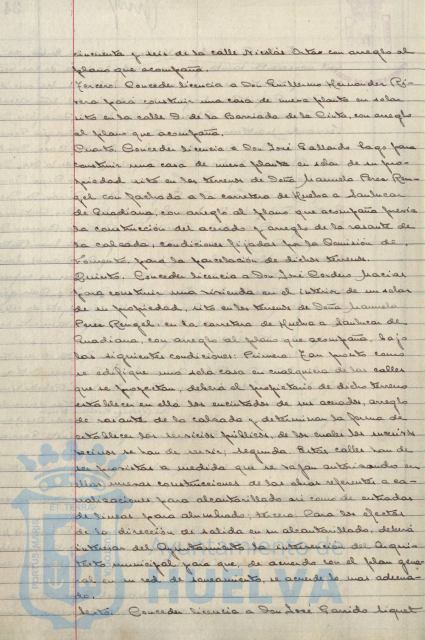 cincuenta y seis de la calle Nicolás Orta con arreglo al
plano que acompaña.
Tercero. Conceder licencia a Don Guillermo Hernandez Ri-
vera para construir una casa de nueva planta en solar
sito en la calle D. de la Barriada de la Cinta, con arreglo
al plano que acompaña.
Cuarto. Conceder licencia a Don José Gallardo Lago para
construir una casa de nueva planta en solar de su pro-
piedad sito en los terrenos de Doña Manuela Perez Ren-
gel con fachada a la carretera de Huelva a Sanlucar
de Guadiana, con arreglo al plano que acompaña previa
la construcción del acerado y arreglo de la rasante de
la calzada, condiciones fijadas por la Comisión de
Fomento para la parcelación de dichos terrenos.
Quinto. Conceder licencia a Don José Cordero Macias
para construir una vivienda en el interior de un solar
de su propiedad, sito en los terrenos de Doña Manuela
Perez Rengel en la carretera de Huelva a Sanlucar de
Guadiana, con arreglo al plano que acompaña, bajo
las siguientes condiciones: Primera. Tan pronto como
se edifique una sola casa en cualquiera de las calles
que se proyectan, deberá el propietario de dicho terreno
establecer en ella los encintados de sus acerados, arreglo
de rasante de la calzada y determinar la forma de
establecer los servicios públicos, de los cuales los
vecinos se han de servir; segunda. Estas calles han de
ser provistas a medida que se vayan autorizando en
ellas nuevas construcciones de las obras referentes a ca-
nalizaciones para alcantarillado asi como de entradas
de lineas para alumbrado; tercera. Para los efectos
de la dirección de salida en su alcantarillado, deberá
interesar del Ayuntamiento la del Arqui-
tecto municipal para que, de acuerdo con el plan gene-
ral en su red de saneamiento, se acuerde lo mas adecua-
do.
Sexto. Conceder licencia a Don José Garrido Miguel
PORTUS MARIS
ET TERRAE
HUELVA